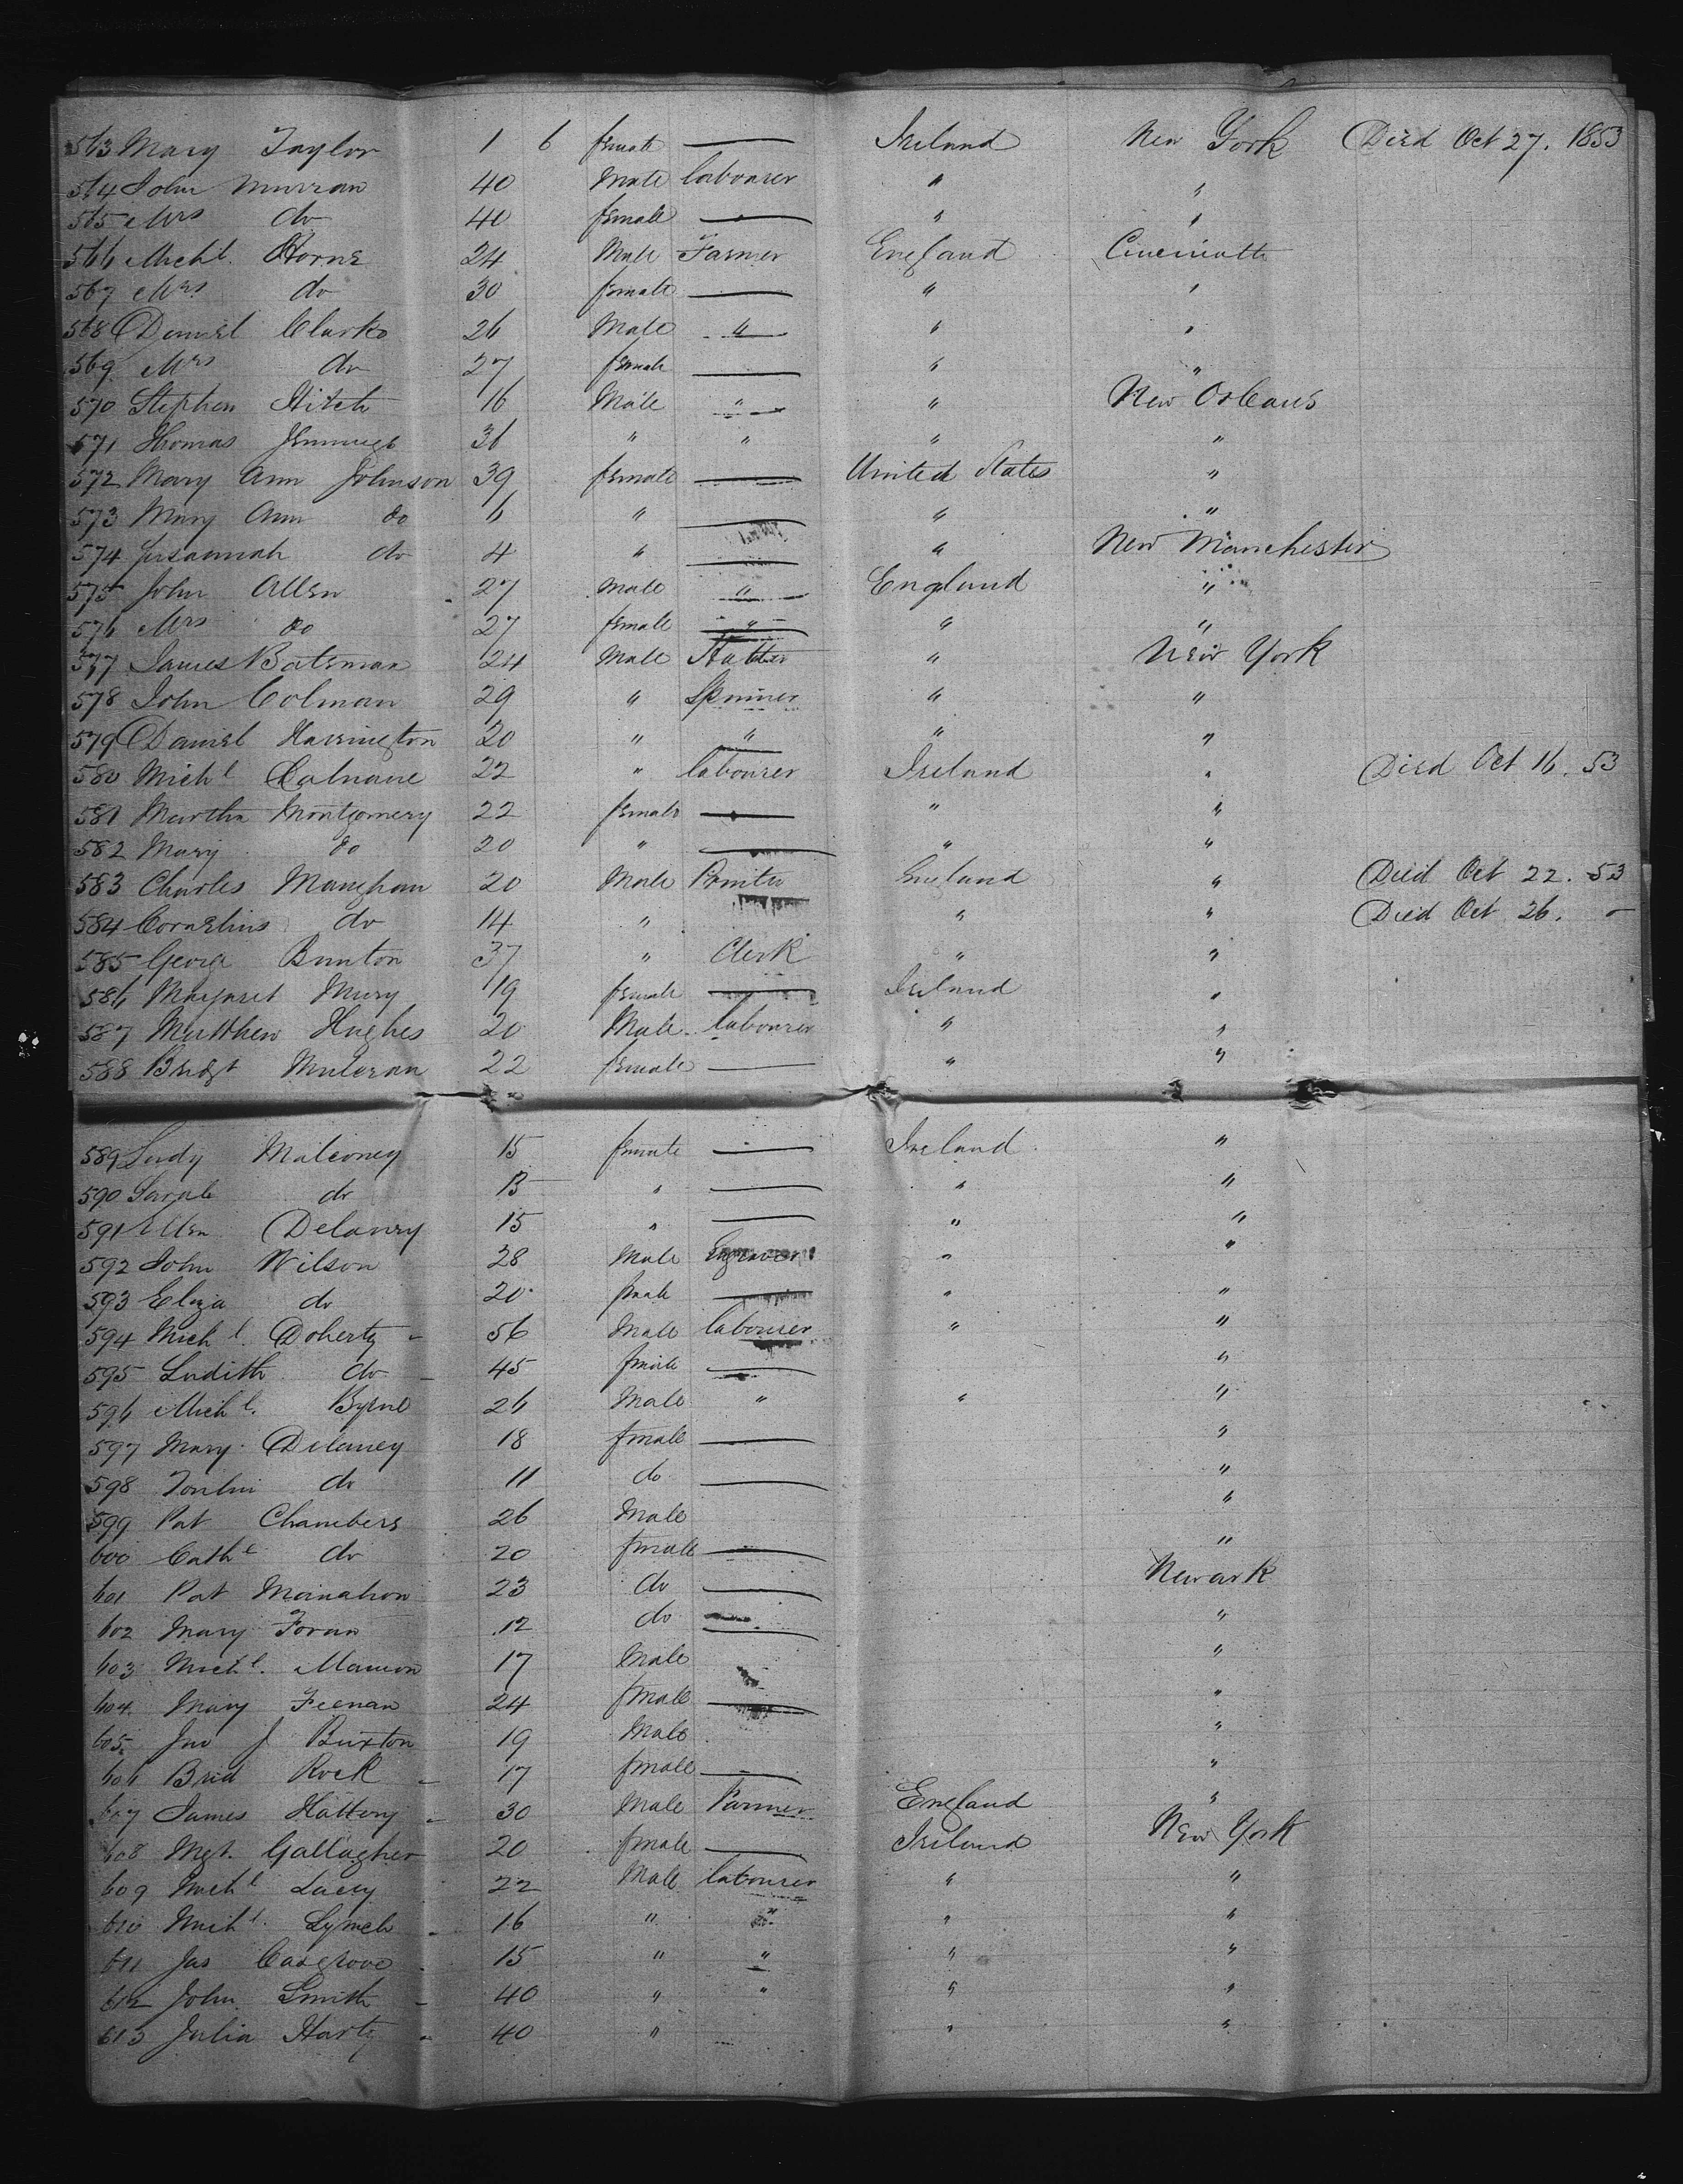 563 Mary Taylor 1 6 female — Ireland New York Died Oct 27. 1853
564 John Murran 40 Male labourer " "
565 Mrs do 40 female — " "
566 Michl. Horne 24 Male Farmer England Cincinatti
567 Mrs do 30 female — " "
568 Daniel Clarke 26 Male " " "
569 Mrs do 27 female — " "
570 Stephen Hitch 16 Male " " New Orleans
571 Thomas Jennings 31 " " " "
572 Mary Ann Johnson 39 female — United States "
573 Mary Ann do 6 " — " "
574 Susannah do 4 " — " New Manchester
575 John Allen 27 Male " England "
576 Mrs do 27 female " " "
577 James Bateman 24 Male Hatter " New York
578 John Colman 29 " Spinner " "
579 Daniel Harrington 20 " " " "
580 Michl Calnane 22 " labourer Ireland " Died Oct 16. 53
581 Martha Montgomery 22 female — " "
582 Mary do 20 " — " "
583 Charles Manghan 20 Male England " Died Oct 22. 53
584 Cornelius do 14 " " " Died Oct 26. "
585 George Bunton 37 " Clerk " "
586 Margaret Mury 19 female — Ireland "
587 Matthew Hughes 20 Male labourer " "
588 Bridgt Muleran 22 female — " "
589 Judy Maleoney 15 female — Ireland "
590 Sarah do 13 " — " "
591 Ellen Delaney 15 " — " "
592 John Wilson 28 Male Engraver " "
593 Eliza do 20 fmale — " "
594 Michl. Doherty 56 Male labourer " "
595 Judith do 45 fmale — "
596 Michl. Byrne 26 Male " " "
597 Mary Delaney 18 fmale — "
598 do 11 do — "
599 Pat Chambers 26 Male "
600 Cathe do 20 fmale — "
601 Pat 23 do — Newark
602 Mary Foran 12 do — "
603 Michl. Mannon 17 Male "
604 Mary Feenan 24 fmale — "
605 Jno J Buxton 19 Male "
606 Brid Rock 17 fmale — "
607 James Hattory 30 Male Farmer England "
608 Mgt. Gallagher 20 fmale — Ireland New York
609 Michl Lacey 22 Male labourer " "
610 Michl. Lynch 16 " " " "
611 Jas Casgrove 15 " " " "
612 John Smith 40 " " " "
613 Julia Harty 40 " " "